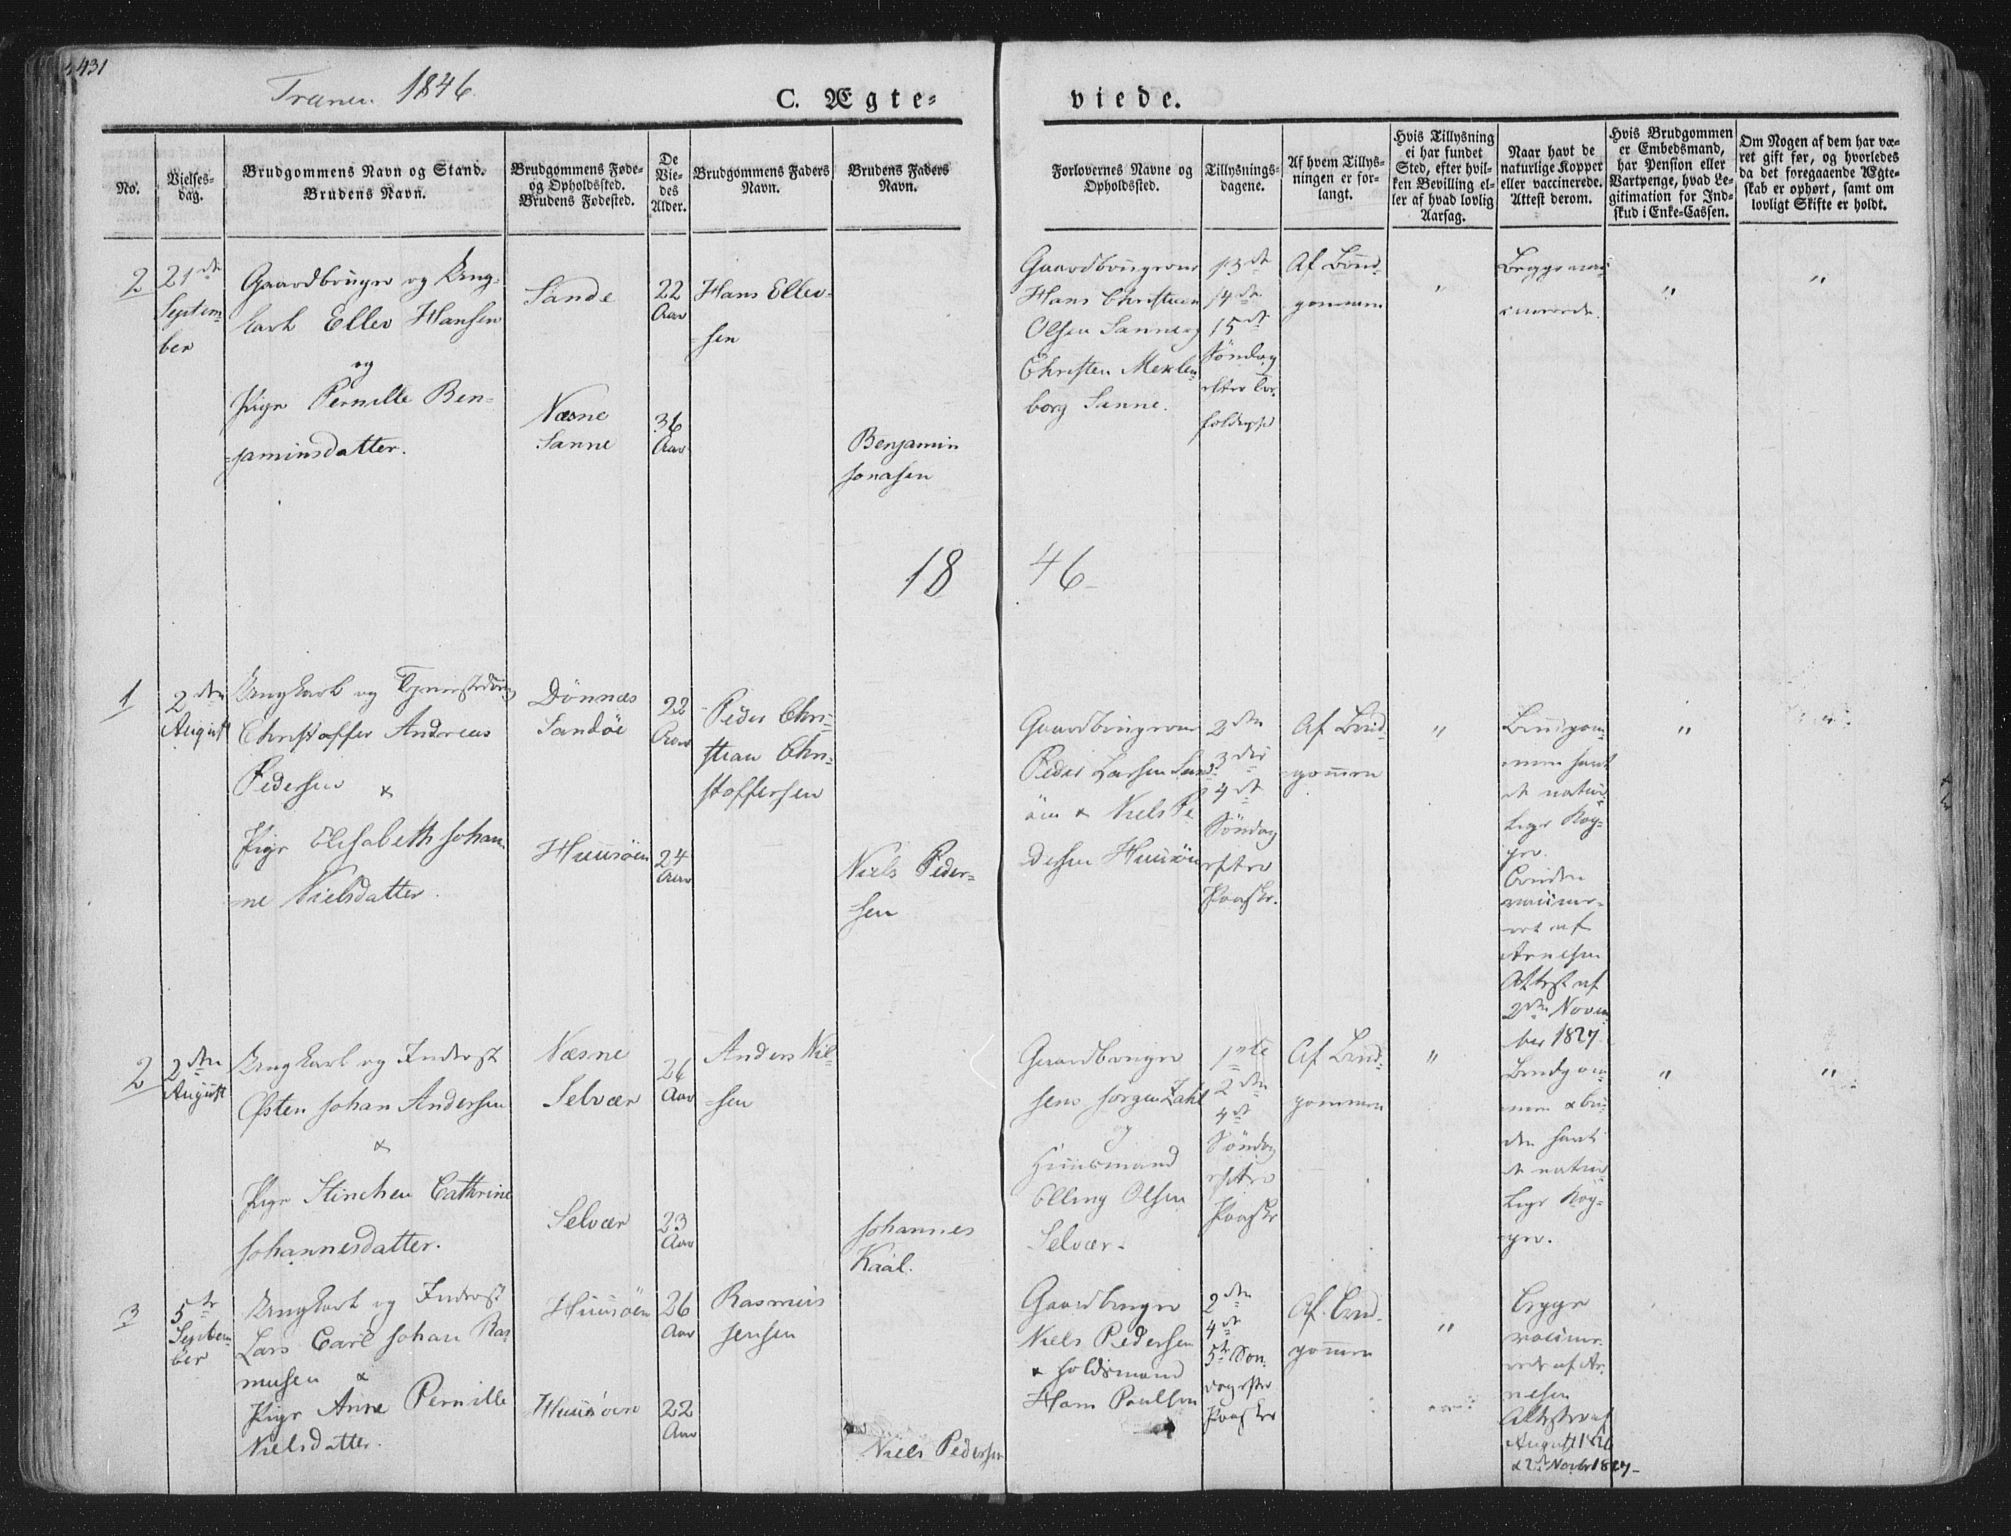 431
Trænen 1846
C. Ægte=
viede.
No.
Vielses-
dag.
Brudgommens Navn og Stand.
Brudens Navn.
Brudgommens Føde-
og Opholdssted.
Brudens Fødested.
De
Vie-
des
Alder.
Brudgommens Faders
Navn.
Brudens Faders
Navn.
Forlovernes Navne og
Opholdssted.
Tillysnings-
dagene.
Af hvem Tillys-
ningen er for-
langt.
Hvis Tillysning
ei har fundet
Sted, efter hvil-
ken Bevilling el-
ler af hvad lovlig
Aarsag.
Naar havt de
naturlige Kopper
eller vaccinerede.
Attest derom.
Hvis Brudgommen
er Embedsmand,
har Pension eller
Vartpenge, hvad Le-
gitimation for Ind-
skud i Enke-Cassen.
Om Nogen af dem har væ-
ret gift før, og hvorledes
da det foregaaende Ægte-
skab er ophørt, samt om
lovligt Skifte er holdt.
2
21de
Septem-
ber
Gaardbruger og Ung-
karl Eller Hansen
og
Pige Pernille Ben-
jaminsdatter.
Sande
Næsne
Sanne
22
Aar
36
Aar
Hans Eller-
sen
Benjamin
Jonasen
Gaardbrugerne
Hans Christian
Olsen Sanne og
Christen Meklen-
borg Sanne.
13de
14de
15de
Søndag
efter
Af Brud-
gommen
"
Begge vac-
cinerede.
"
"
18 46
1
2den
August
Ungkarl og
Christoffer Andreas
Pedersen &
Pige Elisabeth Johan-
ne Nielsdatter.
Dönnæs
Sandöe
Huusöen
22
Aar
24
Aar
Peder Chri-
stian Chri-
stoffersen
Niels Peder-
sen
Gaardbrugerne
Peder Larsen Sand-
öen & Niels Pe-
dersen Huusöen
2den
3die
4de
Søndag
efter
Paaske.
Af Brud-
gommen
"
Brudgom-
men havt
de natur-
lige Kop-
per.
Bruden
vaccine-
ret af
Arnesen
Attest af
2den Novem-
ber 1827
"
"
2
2den
August
Ungkarl og Inderst
Østen Johan Andersen
&
Pige Stinchen Cathrine
Johannesdatter.
Næsne
Selvær
Selvær
26
Aar
23
Aar
Anders Nil-
sen
Johannes
Kaal.
Gaardbruger
Jens Jørgen Zahl
og
Huusmand
Elling Olsen
Selvær.
1ste
2den
4de
Søndag
efter
Paaske
Af Brud-
gommen
"
Brudgom-
men & Bru-
den havt
de natur-
lige Kop-
per.
"
"
3
5te
Septem-
ber
Ungkarl og Inderst
Lars Carl Johan Ras-
musen &
Pige Anne Pernille
Nielsdatter.
Huusöen
Huusöen
26
Aar
22
Aar
Rasmus
Jensen
Niels Pedersen
Gaardbruger
Niels Pedersen
&
Hans Paulsen
2den
4de
5te Søn-
dag efter
Paaske
Af Brud-
gommen
"
Begge
vaccine-
rede af Ar-
nesen
Attester af
August
& 2den Novbr 1827-